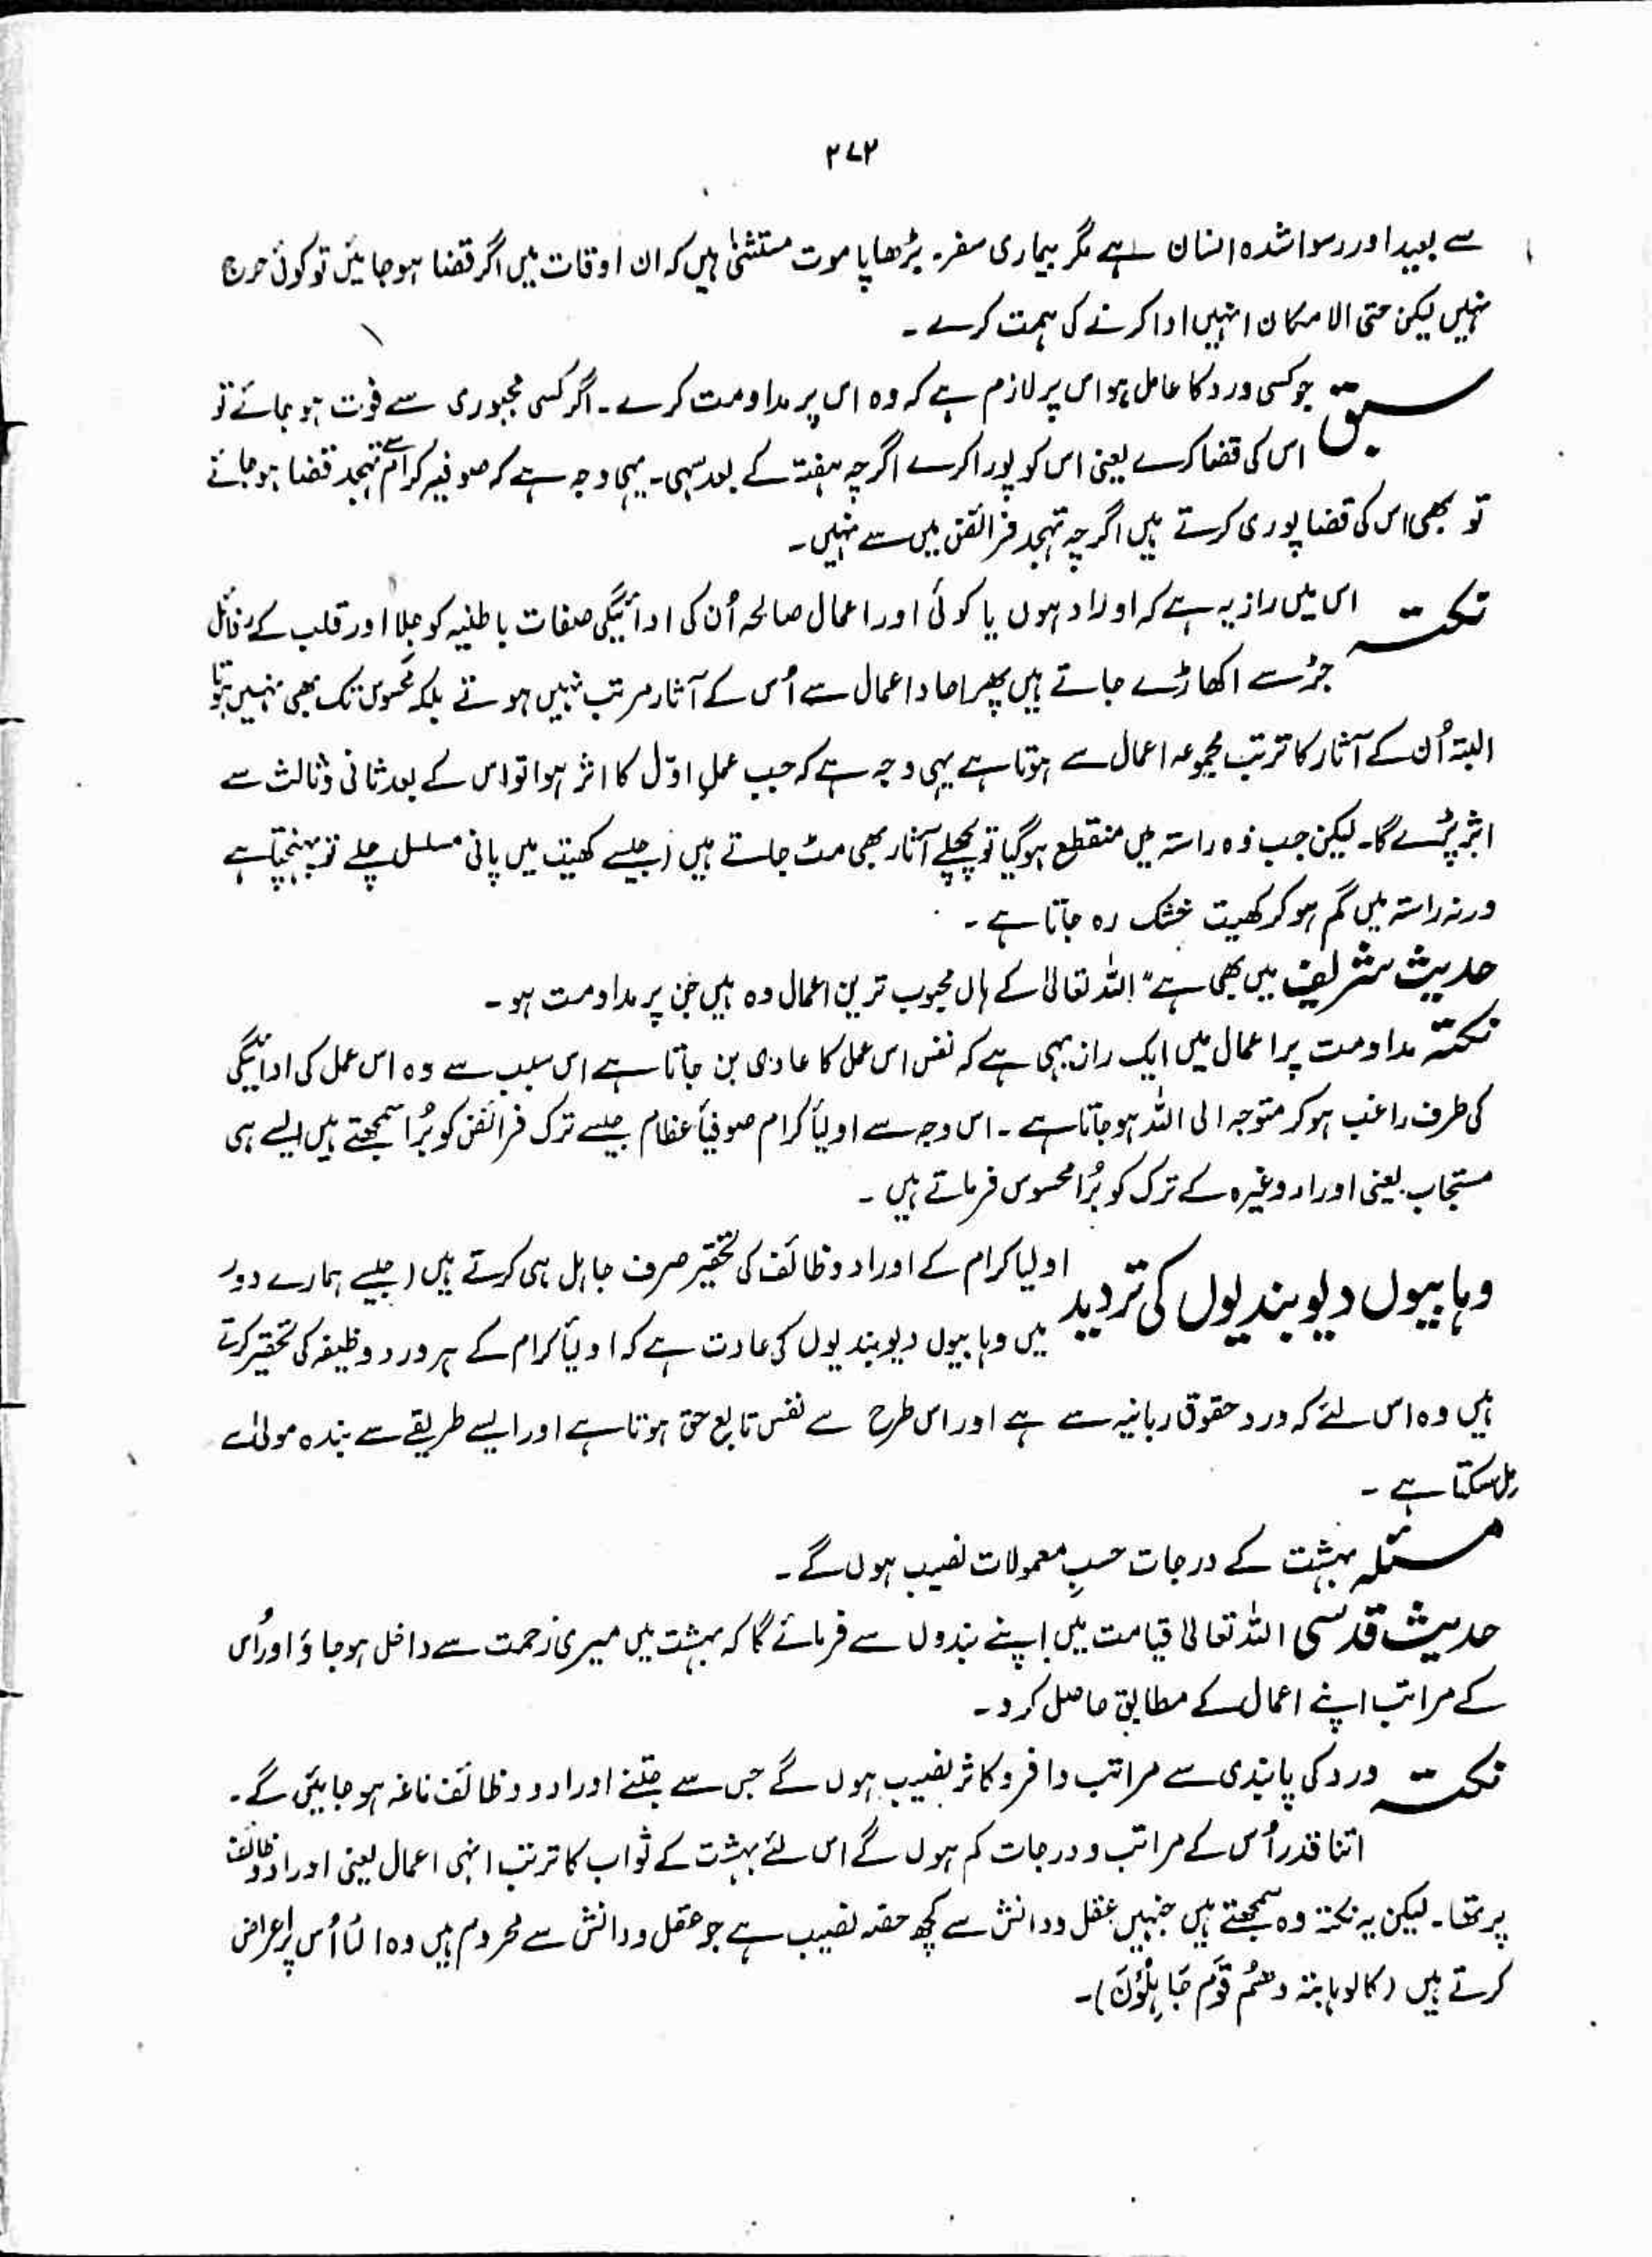 ۲۷۲
سے بعید اور رسوا شدہ انسان ہے مگر بیماری سفر۔ بڑھاپا موت مستثنیٰ ہیں کہ ان اوقات میں اگر قضا ہو جائیں تو کوئی حرج
نہیں لیکن حتی الامکان انہیں ادا کرنے کی ہمت کرے۔
سبق جو کسی ورد کا عامل ہو اس پر لازم ہے کہ وہ اس پر مداومت کرے۔ اگر کسی مجبوری سے فوت ہو جائے تو
اس کی قضا کرے یعنی اس کو پورا کرے اگرچہ ہفتہ کے بعد سہی۔ یہی وجہ ہے کہ صوفیہ کرام سے تہجد قضا ہو جاتے
تو بھی اس کی قضا پوری کرتے ہیں اگرچہ تہجد فرائض میں سے نہیں۔
نکتہ اس میں راز یہ ہے کہ اوراد ہوں یا کوئی اور اعمال صالحہ اُن کی ادائیگی صفات باطنیہ کو جلا اور قلب کے رذائل
جڑ سے اکھاڑے جاتے ہیں پھر احاد اعمال سے اُس کے آثار مرتب نہیں ہوتے بلکہ محسوس تک بھی نہیں ہوتا
البتہ اُن کے آثار کا ترتب مجموعہ اعمال سے ہوتا ہے یہی وجہ ہے کہ جب عمل اوّل کا اثر ہوا تو اس کے بعد ثانی و ثالث سے
اثر پڑے گا۔ لیکن جب وہ راستہ میں منقطع ہو گیا تو پچھلے آثار بھی مٹ جاتے ہیں (جیسے کھیت میں پانی مسلسل چلے تو پہنچتا ہے
ورنہ راستہ میں گم ہو کر کھیت خشک رہ جاتا ہے۔
حدیث شریف میں بھی ہے "اللہ تعالیٰ کے ہاں محبوب ترین اعمال وہ ہیں جن پر مداومت ہو۔
نکتہ مداومت پر اعمال میں ایک راز یہی ہے کہ نفس اس عمل کا عادی بن جاتا ہے اس سبب سے وہ اس عمل کی ادائیگی
کی طرف راغب ہو کر متوجہ الی اللہ ہو جاتا ہے۔ اس وجہ سے اولیأ کرام صوفیأ عظام جیسے ترک فرائض کو بُرا سمجھتے ہیں ایسے ہی
مستجاب یعنی اوراد وغیرہ کے ترک کو بُرا محسوس فرماتے ہیں۔
وہابیوں دیوبندیوں کی تردید اولیا کرام کے اوراد وظائف کی تحقیر صرف جاہل ہی کرتے ہیں (جیسے ہمارے دور
میں وہابیوں دیوبندیوں کی عادت ہے کہ اولیأ کرام کے ہر ورد وظیفہ کی تحقیر کرتے
ہیں وہ اس لئے کہ ورد حقوق ربانیہ سے ہے اور اس طرح سے نفس تابع حق ہوتا ہے اور ایسے طریقے سے بندہ مولیٰ سے
مل سکتا ہے۔
مسئلہ بہشت کے درجات حسبِ معمولات نصیب ہوں گے۔
حدیث قدسی اللہ تعالیٰ قیامت میں اپنے بندوں سے فرمائے گا کہ بہشت میں میری رحمت سے داخل ہو جاؤ اور اُس
کے مراتب اپنے اعمال کے مطابق حاصل کرو۔
نکتہ ورد کی پابندی سے مراتب وافر و کاثر نصیب ہوں گے جس سے جتنے اوراد و وظائف ناغہ ہو جائیں گے۔
اتنا قدر اُس کے مراتب و درجات کم ہوں گے اس لئے بہشت کے ثواب کا ترتب انہی اعمال یعنی اوراد و وظائف
پر تھا۔ لیکن یہ نکتہ وہ سمجھتے ہیں جنہیں عقل و دانش سے کچھ حصہ نصیب ہے جو عقل و دانش سے محروم ہیں وہ الٹا اُس پر اعراض
کرتے ہیں (کالوہابنہ وھُمُ قَوْم جَاہِلُوْنَ)۔